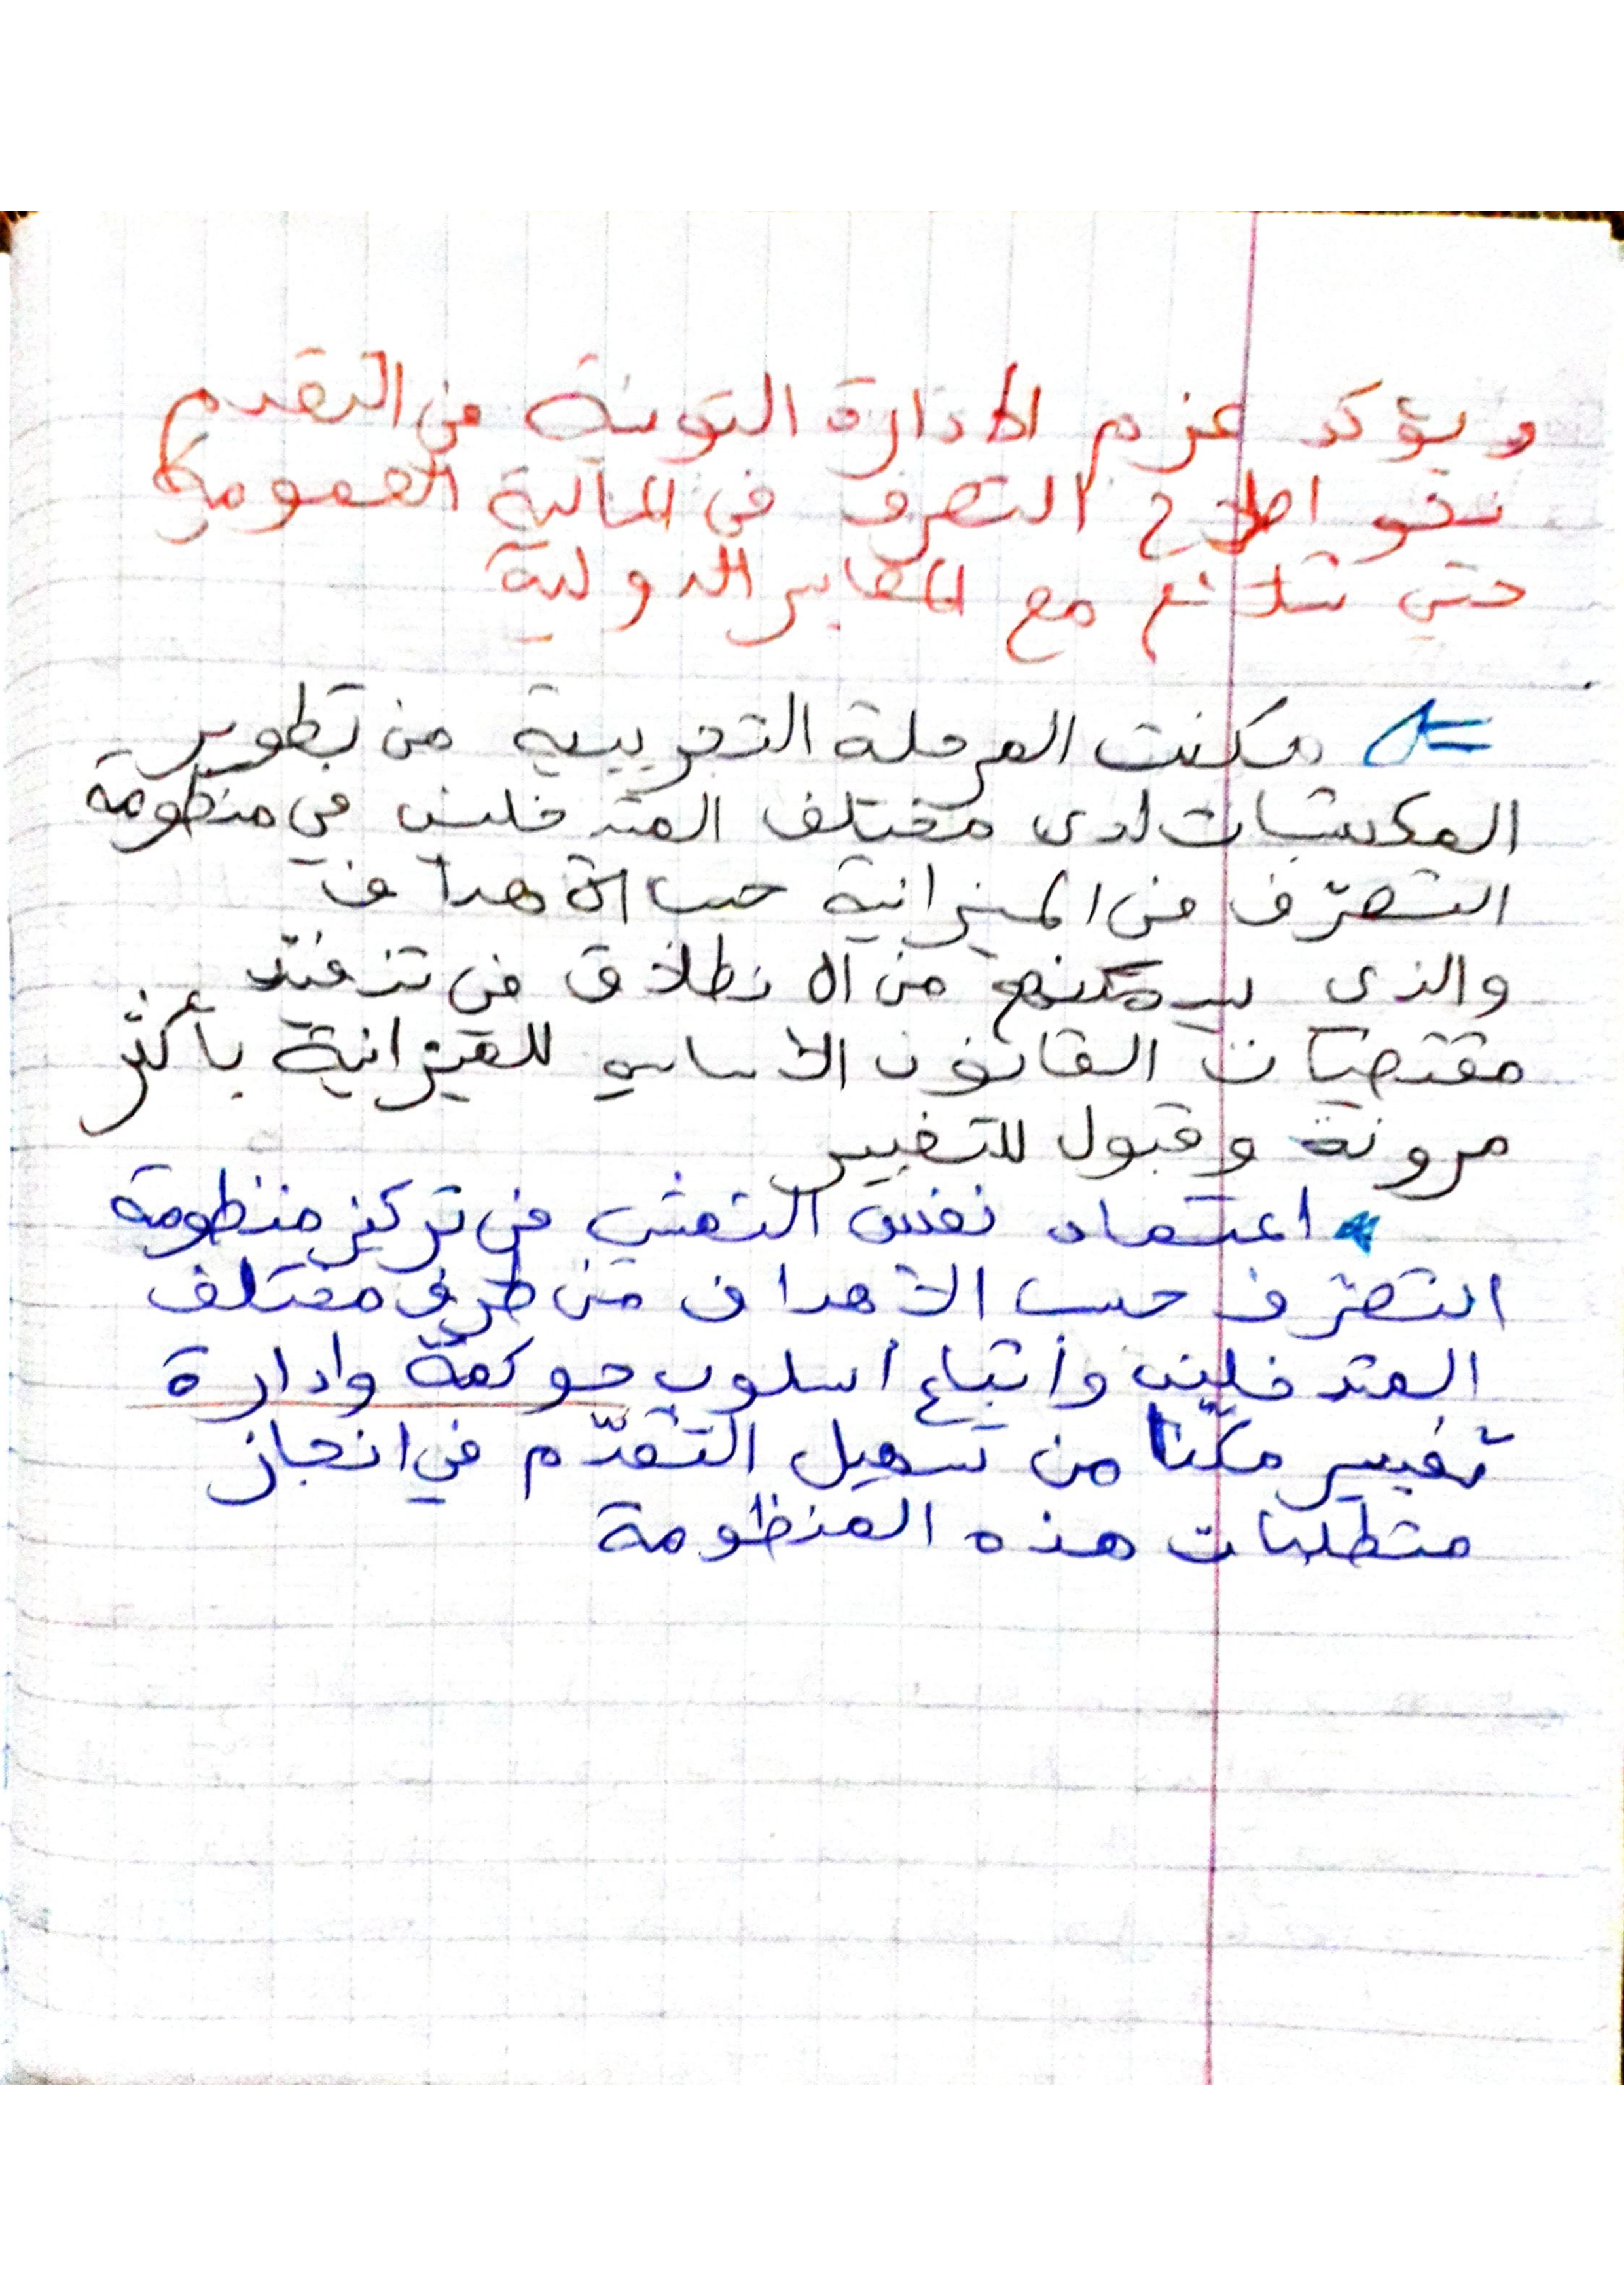 ويؤكد عزم الادارة التونسية في التقدم
نحو اصلاح التصرف في المالية العمومية
حتى تتلائم مع المعايير الدولية
مكنت المرحلة التجريبية من تطوير
المكتسبات لدى مختلف المتدخلين في منظومة
التصرّف في الميزانية حسب الأهداف
والذي سيمكنهم من الانطلاق في تنفيذ
مقتضيات القانون الأساسي للميزانية بأكثر
مرونة وقبول للتغيير
اعتماد نفس التمشي في تركيز منظومة
التصرّف حسب الأهداف من طرف مختلف
المتدخلين واتباع أسلوب حوكمة وادارة
تغيير مكّنا من تسهيل التقدّم في انجاز
متطلبات هذه المنظومة